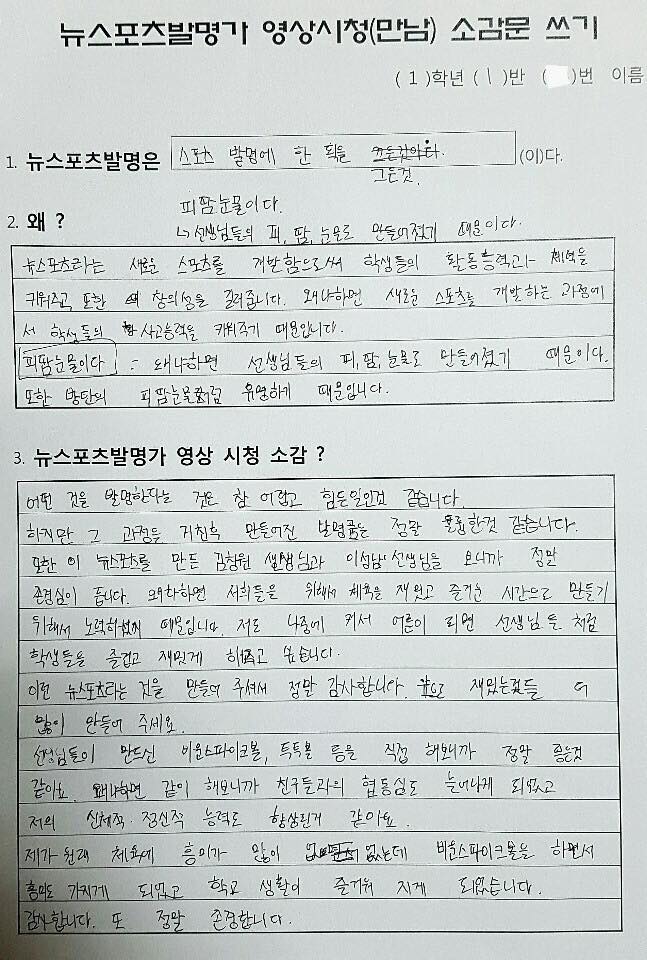 뉴스포츠발명가 영상시청(만남) 소감문 쓰기
( 1 )학년 ( 1 )반 ( )번 이름
1. 뉴스포츠발명은 스포츠 발명에 한 획을 그은것. (이)다.
피땀눈물이다.
2. 왜 ?
↳ 선생님들의 피, 땀, 눈물로 만들어졌기 때문이다.
뉴스포츠라는 새로운 스포츠를 개발함으로써 학생들의 활동능력과 체력을
키워주고 또한 창의성을 길러줍니다. 왜냐하면 새로운 스포츠를 개발하는 과정에
서 학생들의 사고능력을 키워주기 때문입니다.
피땀눈물이다 : 왜냐하면 선생님들의 피, 땀, 눈물로 만들어졌기 때문이다.
또한 방탄의 피땀눈물처럼 유명하기 때문입니다.
3. 뉴스포츠발명가 영상 시청 소감 ?
어떤 것을 발명한다는 것은 참 어렵고 힘든일인것 같습니다.
하지만 그 과정을 거친후 만들어진 발명품은 정말 훌륭한것 같습니다.
또한 이 뉴스포츠를 만든 김창원 선생님과 이섭남 선생님을 보니까 정말
존경심이 듭니다. 왜냐하면 저희들을 위해서 체육을 재밌고 즐거운 시간으로 만들기
위해서 노력하셨기 때문입니다. 저도 나중에 커서 어른이 되면 선생님들 처럼
학생들을 즐겁고 재밌게 해주고 싶습니다.
이런 뉴스포츠라는 것을 만들어 주셔서 정말 감사합니다. 앞으로 재밌는것들 더
많이 만들어 주세요.
선생님들이 만드신 바운스파이크볼, 특특볼 등을 직접 해보니까 정말 좋은것
같아요. 왜냐하면 같이 해보니까 친구들과의 협동심도 늘어나게 되었고
저의 신체적·정신적 능력도 향상된거 같아요.
제가 원래 체육에 흥미가 많이 없었는데 바운스파이크볼을 하면서
흥미도 가지게 되었고 학교 생활이 즐거워 지게 되었습니다.
감사합니다. 또 정말 존경합니다.